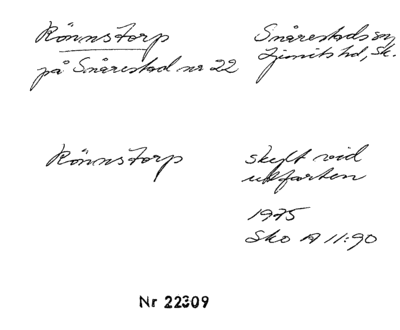 Rönnstorp
på Snårestad nr 22
Snårestads sn
Ljunits hd, Sk.
Rönnstorp
skylt vid
utfarten
1975
Sko A 11:90
Nr 22309